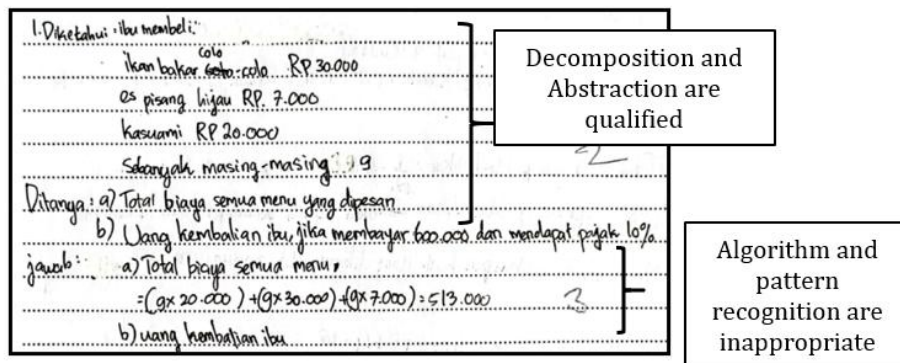 1. Diketahui : ibu membeli:
ikan bakar colo-colo RP 30.000
es pisang hijau RP. 7.000
Kasuami RP 20.000
Sebanyak masing-masing : 9
Ditanya : a) Total biaya semua menu yang dipesan
b) Uang kembalian ibu, jika membayar 600.000 dan mendapat pajak 10%
jawab : a) Total biaya semua menu,
=(9x 20.000) +(9x 30.000)+(9x 7.000) = 513.000
b) uang kembalian ibu
2
3
Decomposition and
Abstraction are
qualified
Algorithm and
pattern
recognition are
inappropriate